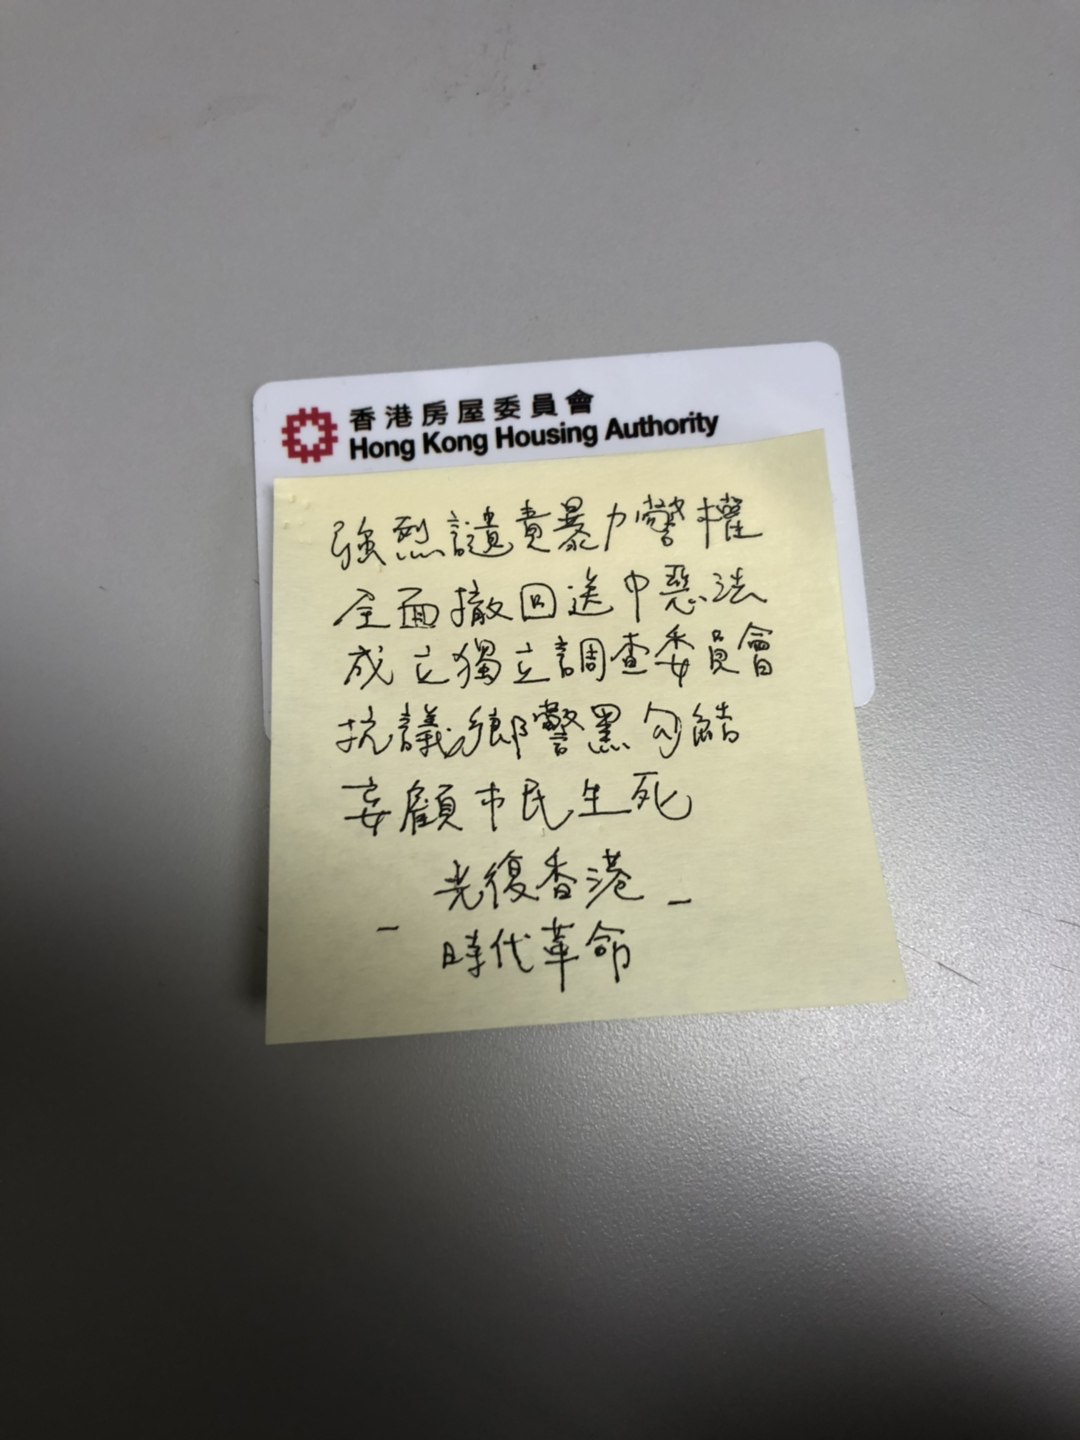 香港房屋委員會
Hong Kong Housing Authority
強烈譴責暴力警權
全面撤回送中惡法
成立獨立調查委員會
抗議鄉警黑勾結
妄顧市民生死
光復香港
時代革命